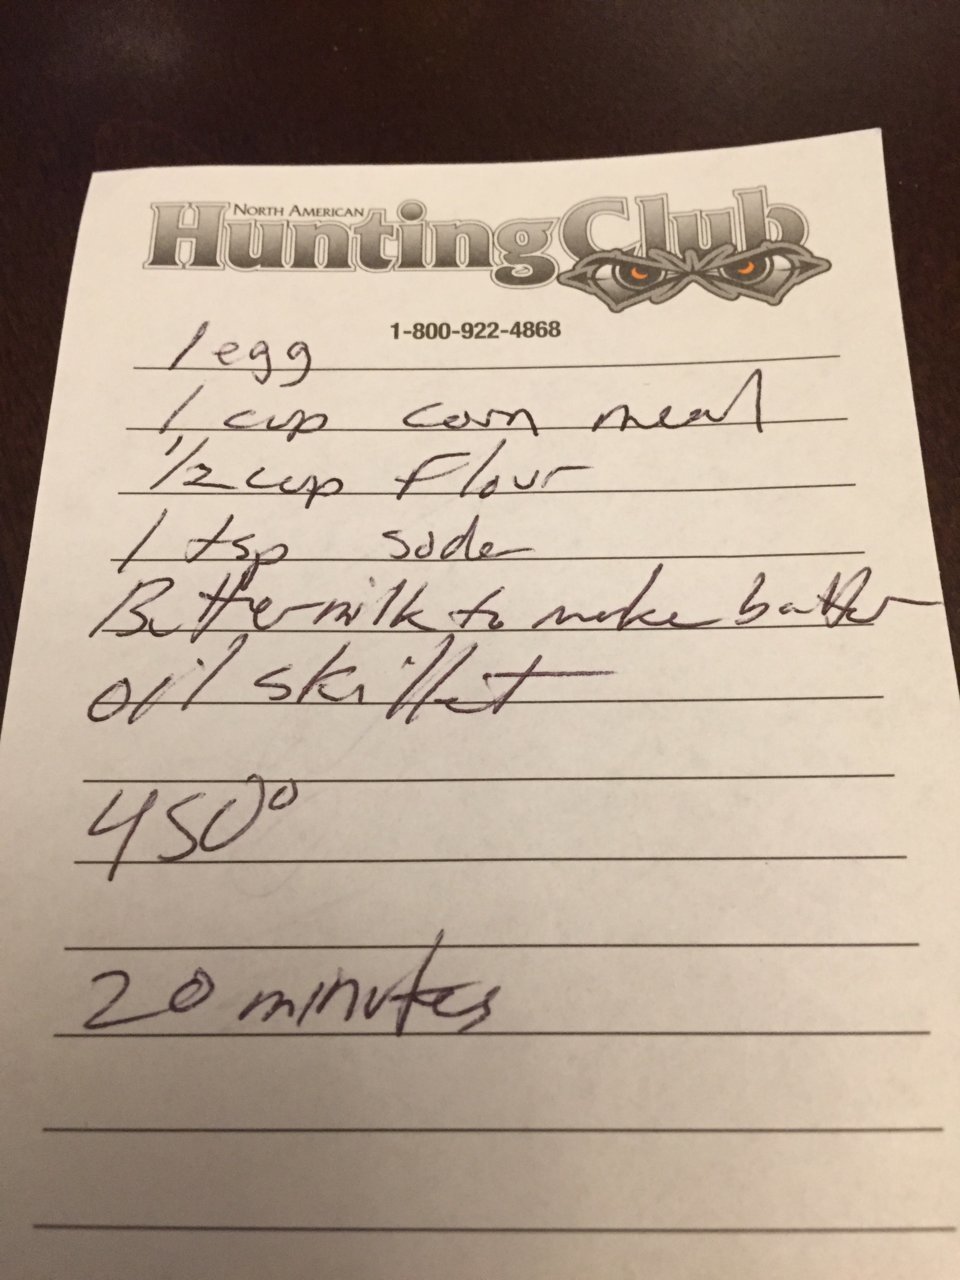 North American
Hunting Club
1-800-922-4868
1 egg
1 cup corn meal
1/2 cup flour
1 tsp soda
Buttermilk to make batter
oil skillet
450°
20 minutes